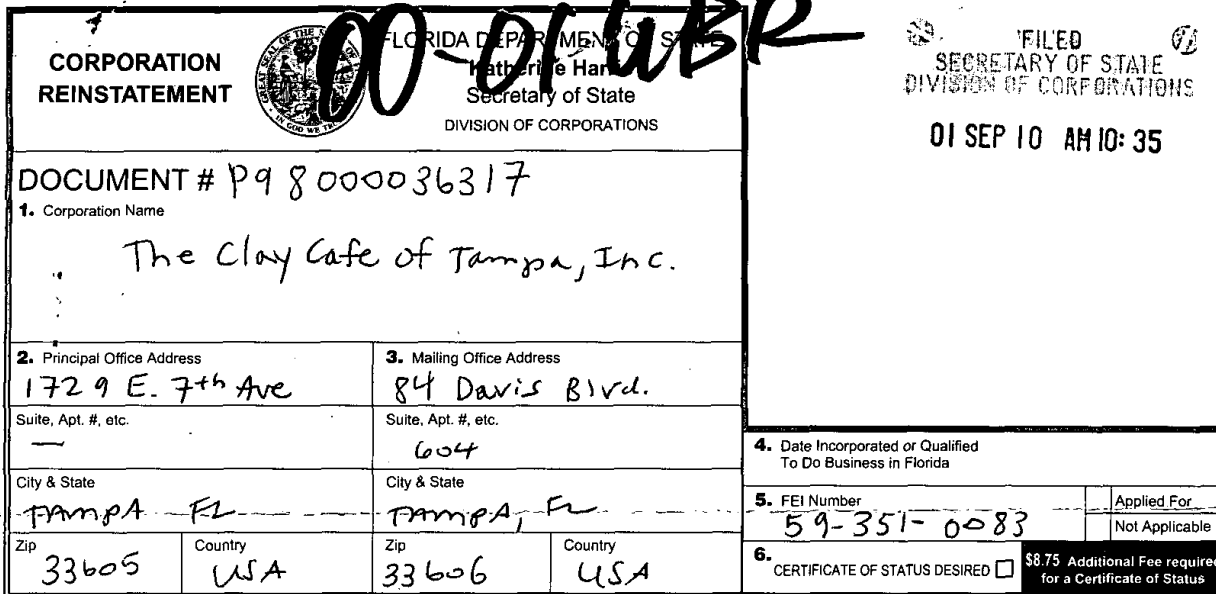 00-01 UBR
CORPORATION
REINSTATEMENT
FLORIDA DEPARTMENT OF STATE
Katherine Harris
Secretary of State
DIVISION OF CORPORATIONS
FILED
SECRETARY OF STATE
DIVISION OF CORPORATIONS
01 SEP 10 AM 10: 35
DOCUMENT # P98000036317
1. Corporation Name
The Clay Cafe of Tampa, Inc.
2. Principal Office Address
1729 E. 7th Ave
3. Mailing Office Address
84 Davis Blvd.
Suite, Apt. #, etc.
—
Suite, Apt. #, etc.
604
City & State
TAMPA FL
City & State
TAMPA, FL
Zip
33605
Country
USA
Zip
33606
Country
USA
4. Date Incorporated or Qualified
To Do Business in Florida
5. FEI Number
59-351-0083
Applied For
Not Applicable
6. CERTIFICATE OF STATUS DESIRED
$8.75 Additional Fee required
for a Certificate of Status